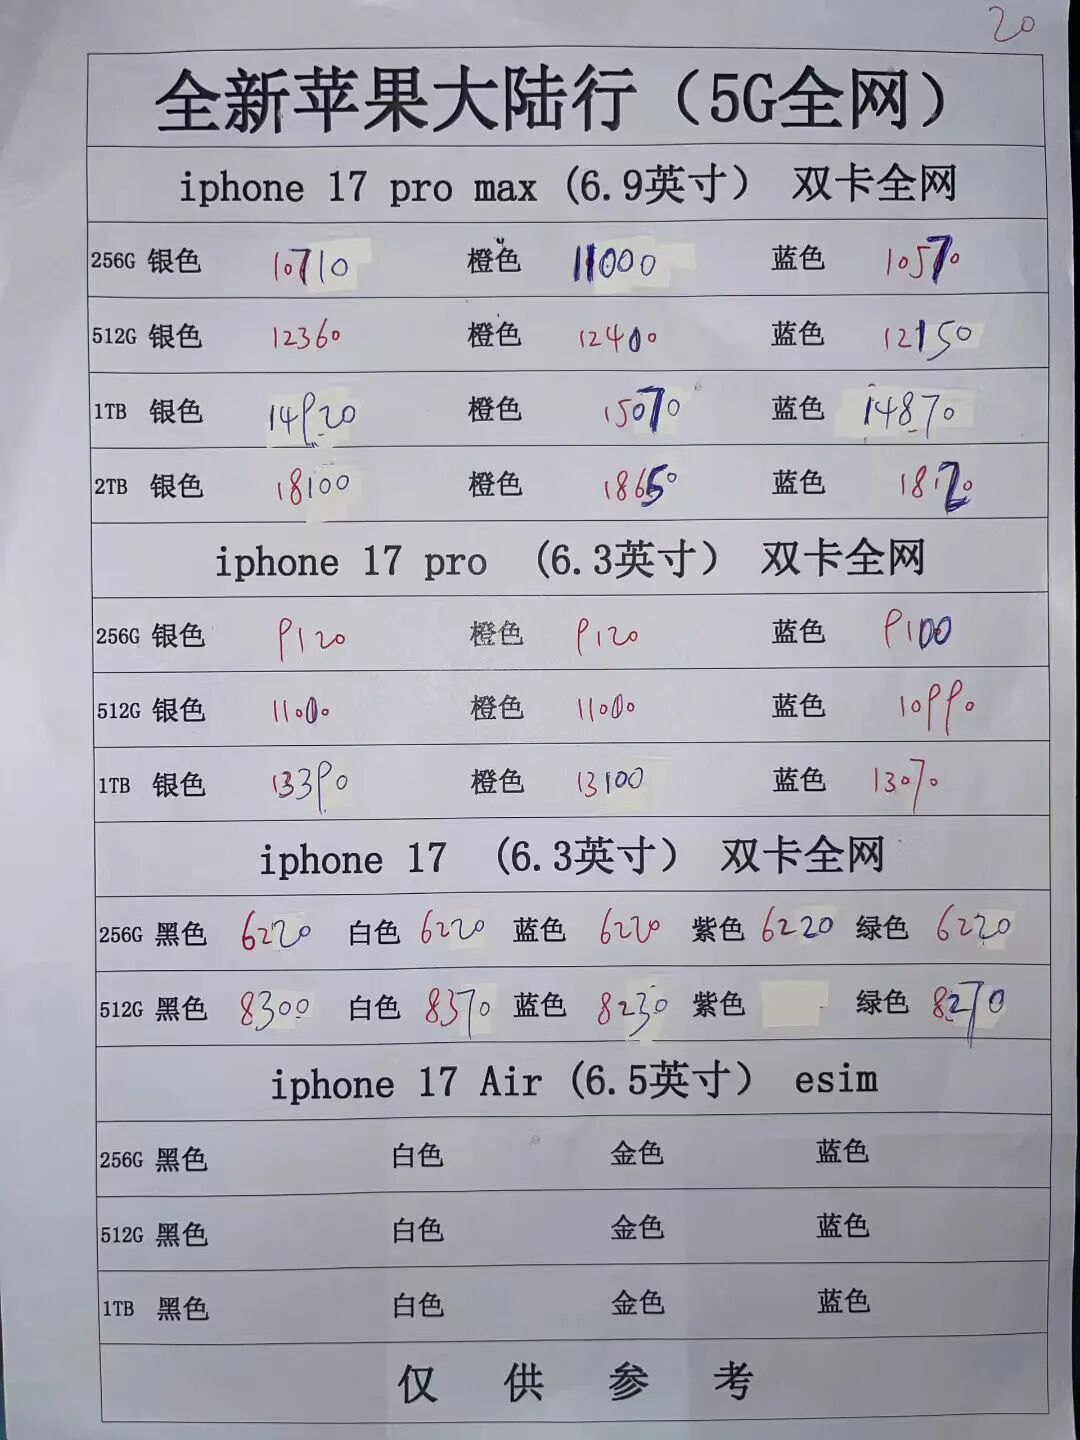 20
全新苹果大陆行（5G全网）
iphone 17 pro max (6.9英寸） 双卡全网
256G 银色 10710 橙色 11000 蓝色 10570
512G 银色 12360 橙色 12400 蓝色 12150
1TB 银色 14920 橙色 15070 蓝色 14870
2TB 银色 18100 橙色 18650 蓝色
iphone 17 pro (6.3英寸） 双卡全网
256G 银色 9120 橙色 9120 蓝色 9100
512G 银色 11000 橙色 11000 蓝色 10990
1TB 银色 13390 橙色 13100 蓝色 13070
iphone 17 (6.3英寸） 双卡全网
256G 黑色 6220 白色 6220 蓝色 6220 紫色 6220 绿色 6220
512G 黑色 8300 白色 8370 蓝色 8230 紫色 绿色 8270
iphone 17 Air (6.5英寸） esim
256G 黑色 白色 金色 蓝色
512G 黑色 白色 金色 蓝色
1TB 黑色 白色 金色 蓝色
仅 供 参 考